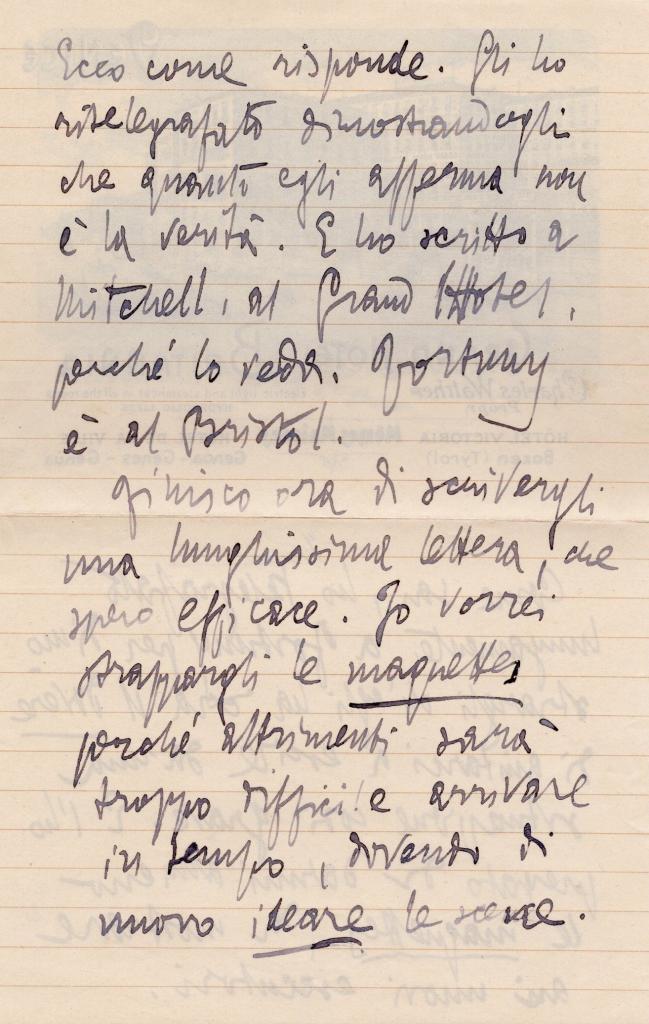 Ecco come risponde. Gli ho
ritelegrafato dimostrandogli
che quanto egli afferma non
è la verità. E ho scritto a
Mitchell, al Grand Hotel,
perché lo veda. Fortuny
è al Bristol.
Finisco ora di scrivergli
una lunghissima lettera, che
spero efficace. Io vorrei
strappargli le maquettes
perché altrimenti sarà
troppo difficile arrivare
in tempo, dovendo di
nuovo ideare le scene.